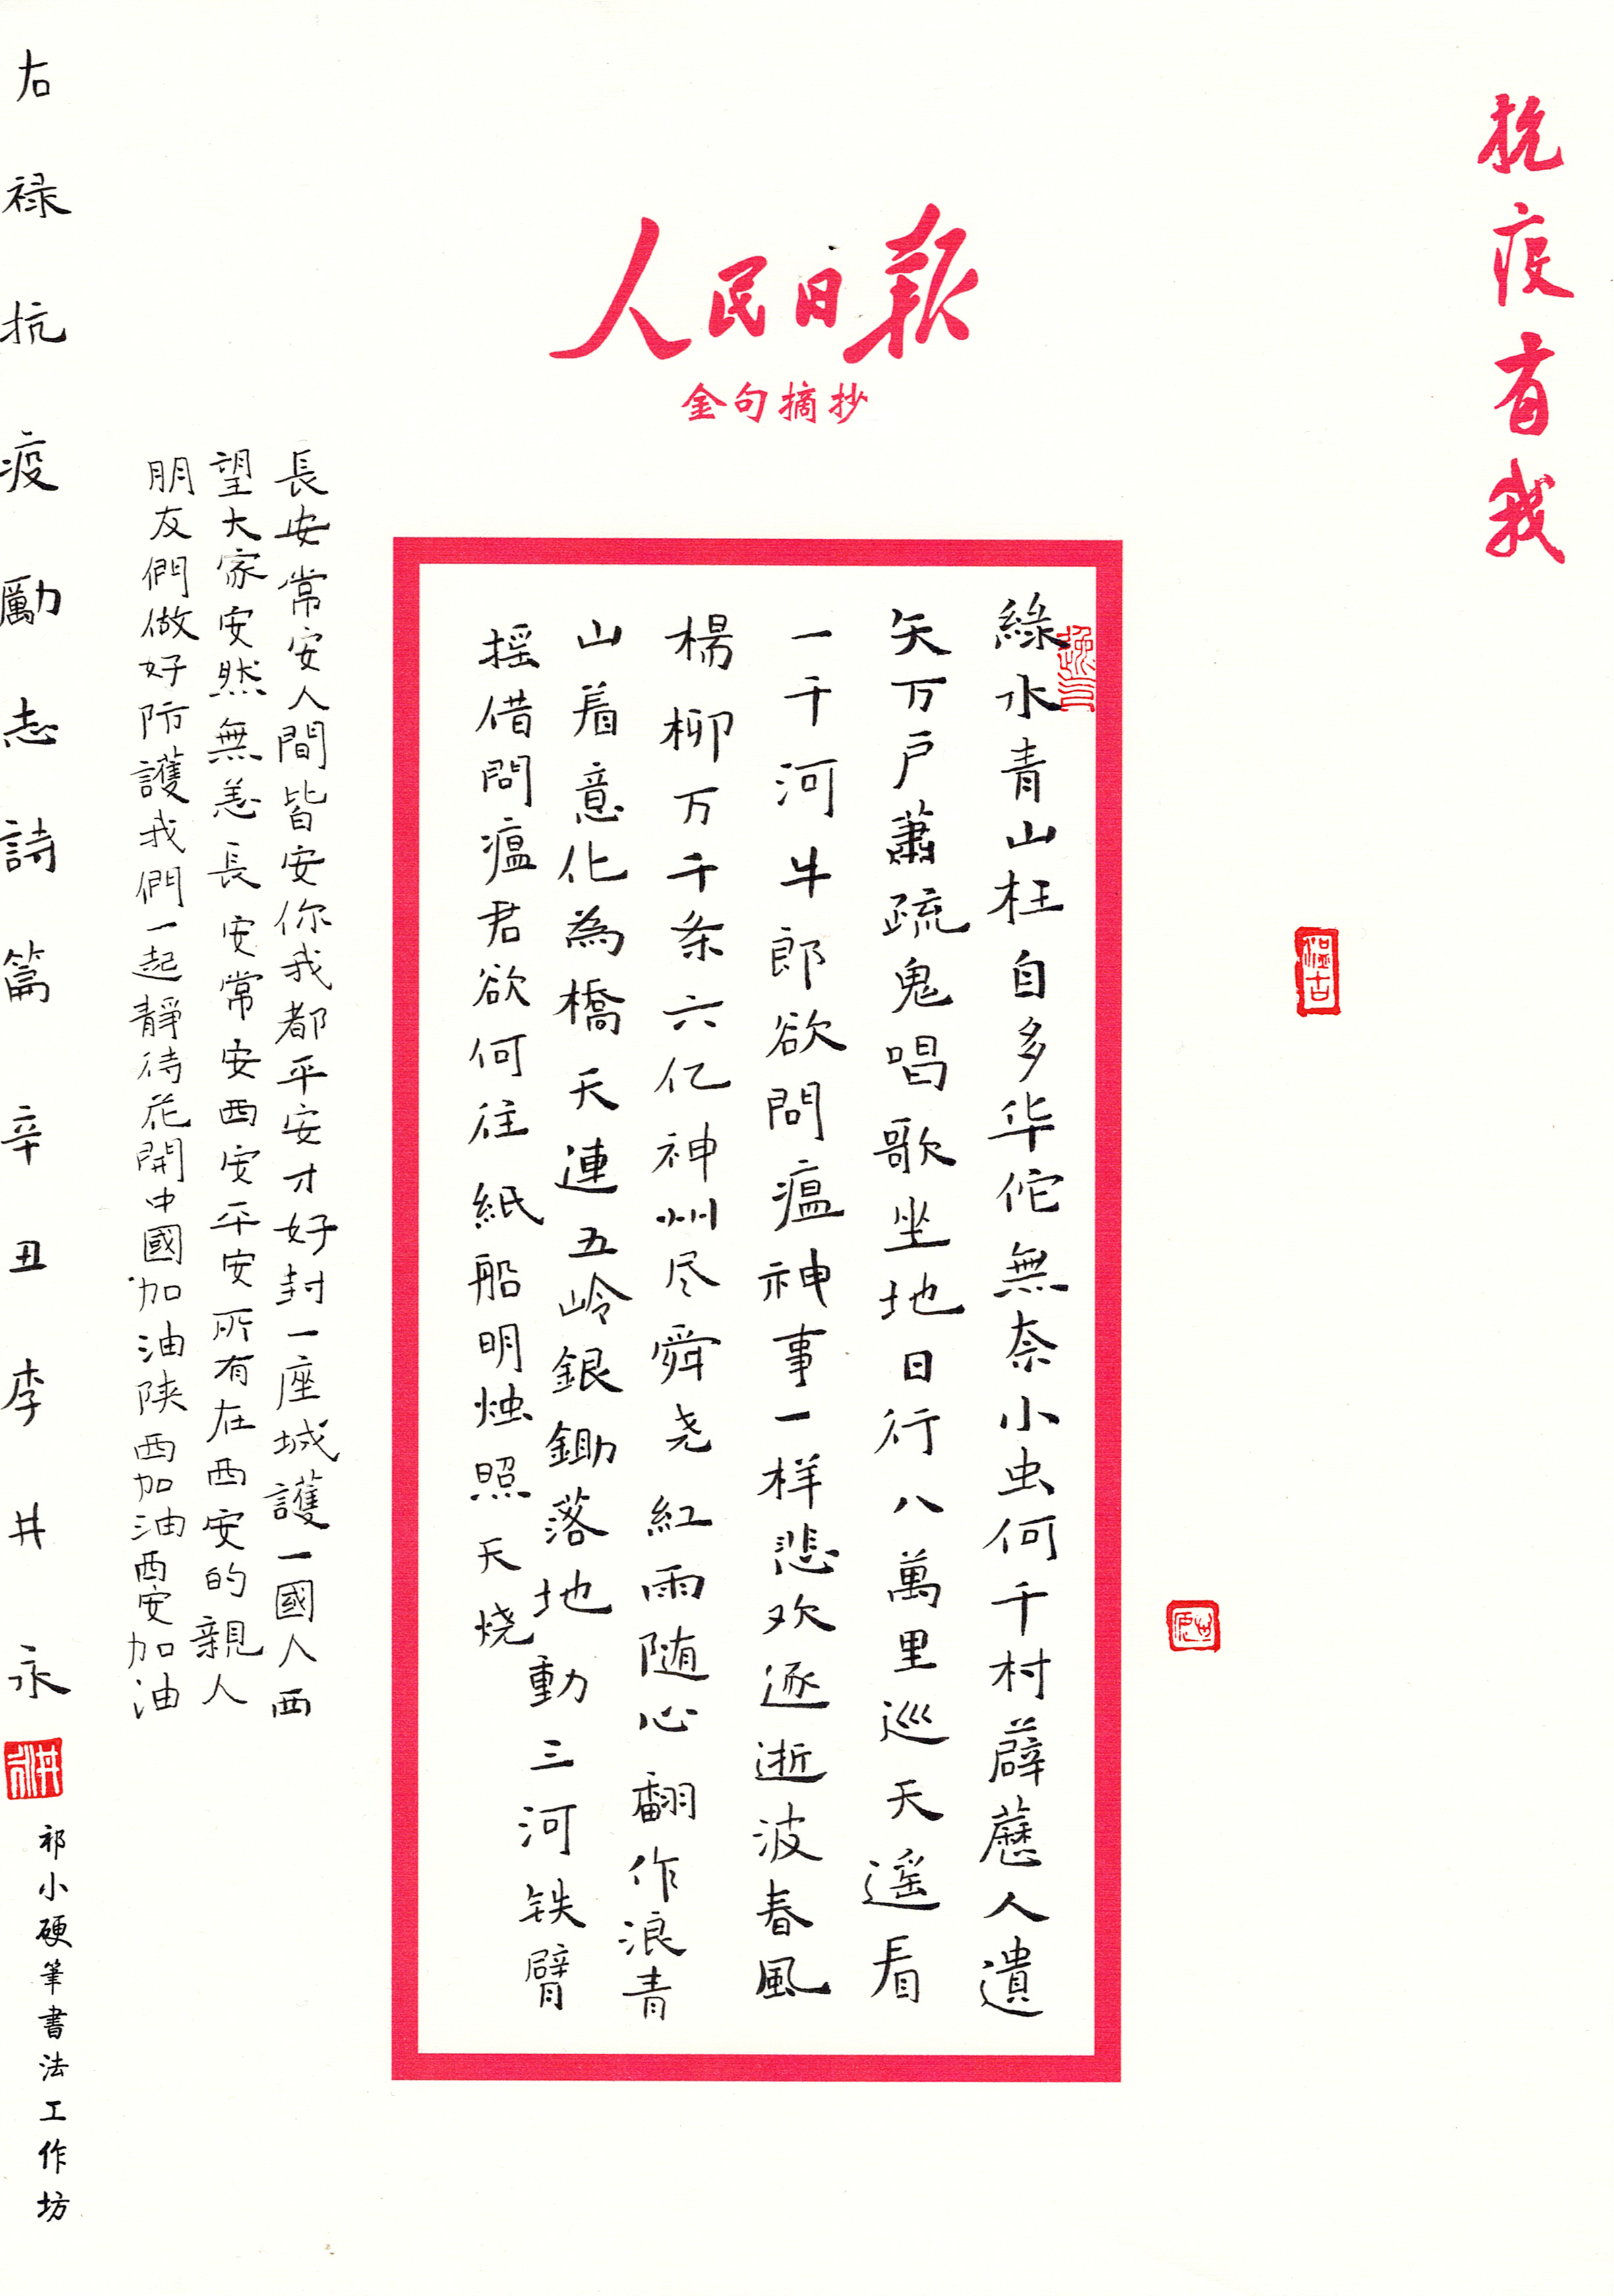 抗疫有我
人民日报
金句摘抄
綠水青山枉自多华佗無奈小虫何千村薜藶人遺
矢万户蕭疏鬼唱歌坐地日行八萬里巡天遥看
一千河牛郎欲問瘟神事一样悲欢逐逝波春風
楊柳万千条六亿神州尽舜尧紅雨随心翻作浪青
山着意化為橋天連五岭銀鋤落地動三河铁臂
摇借問瘟君欲何往紙船明烛照天烧
長安常安人間皆安你我都平安才好封一座城護一國人西
望大家安然無恙長安常安西安平安所有在西安的親人
朋友們做好防護我們一起靜待花開中國加油陕西加油西安加油
右禄抗疫勵志詩篇辛丑李井永
祁小硬筆書法工作坊